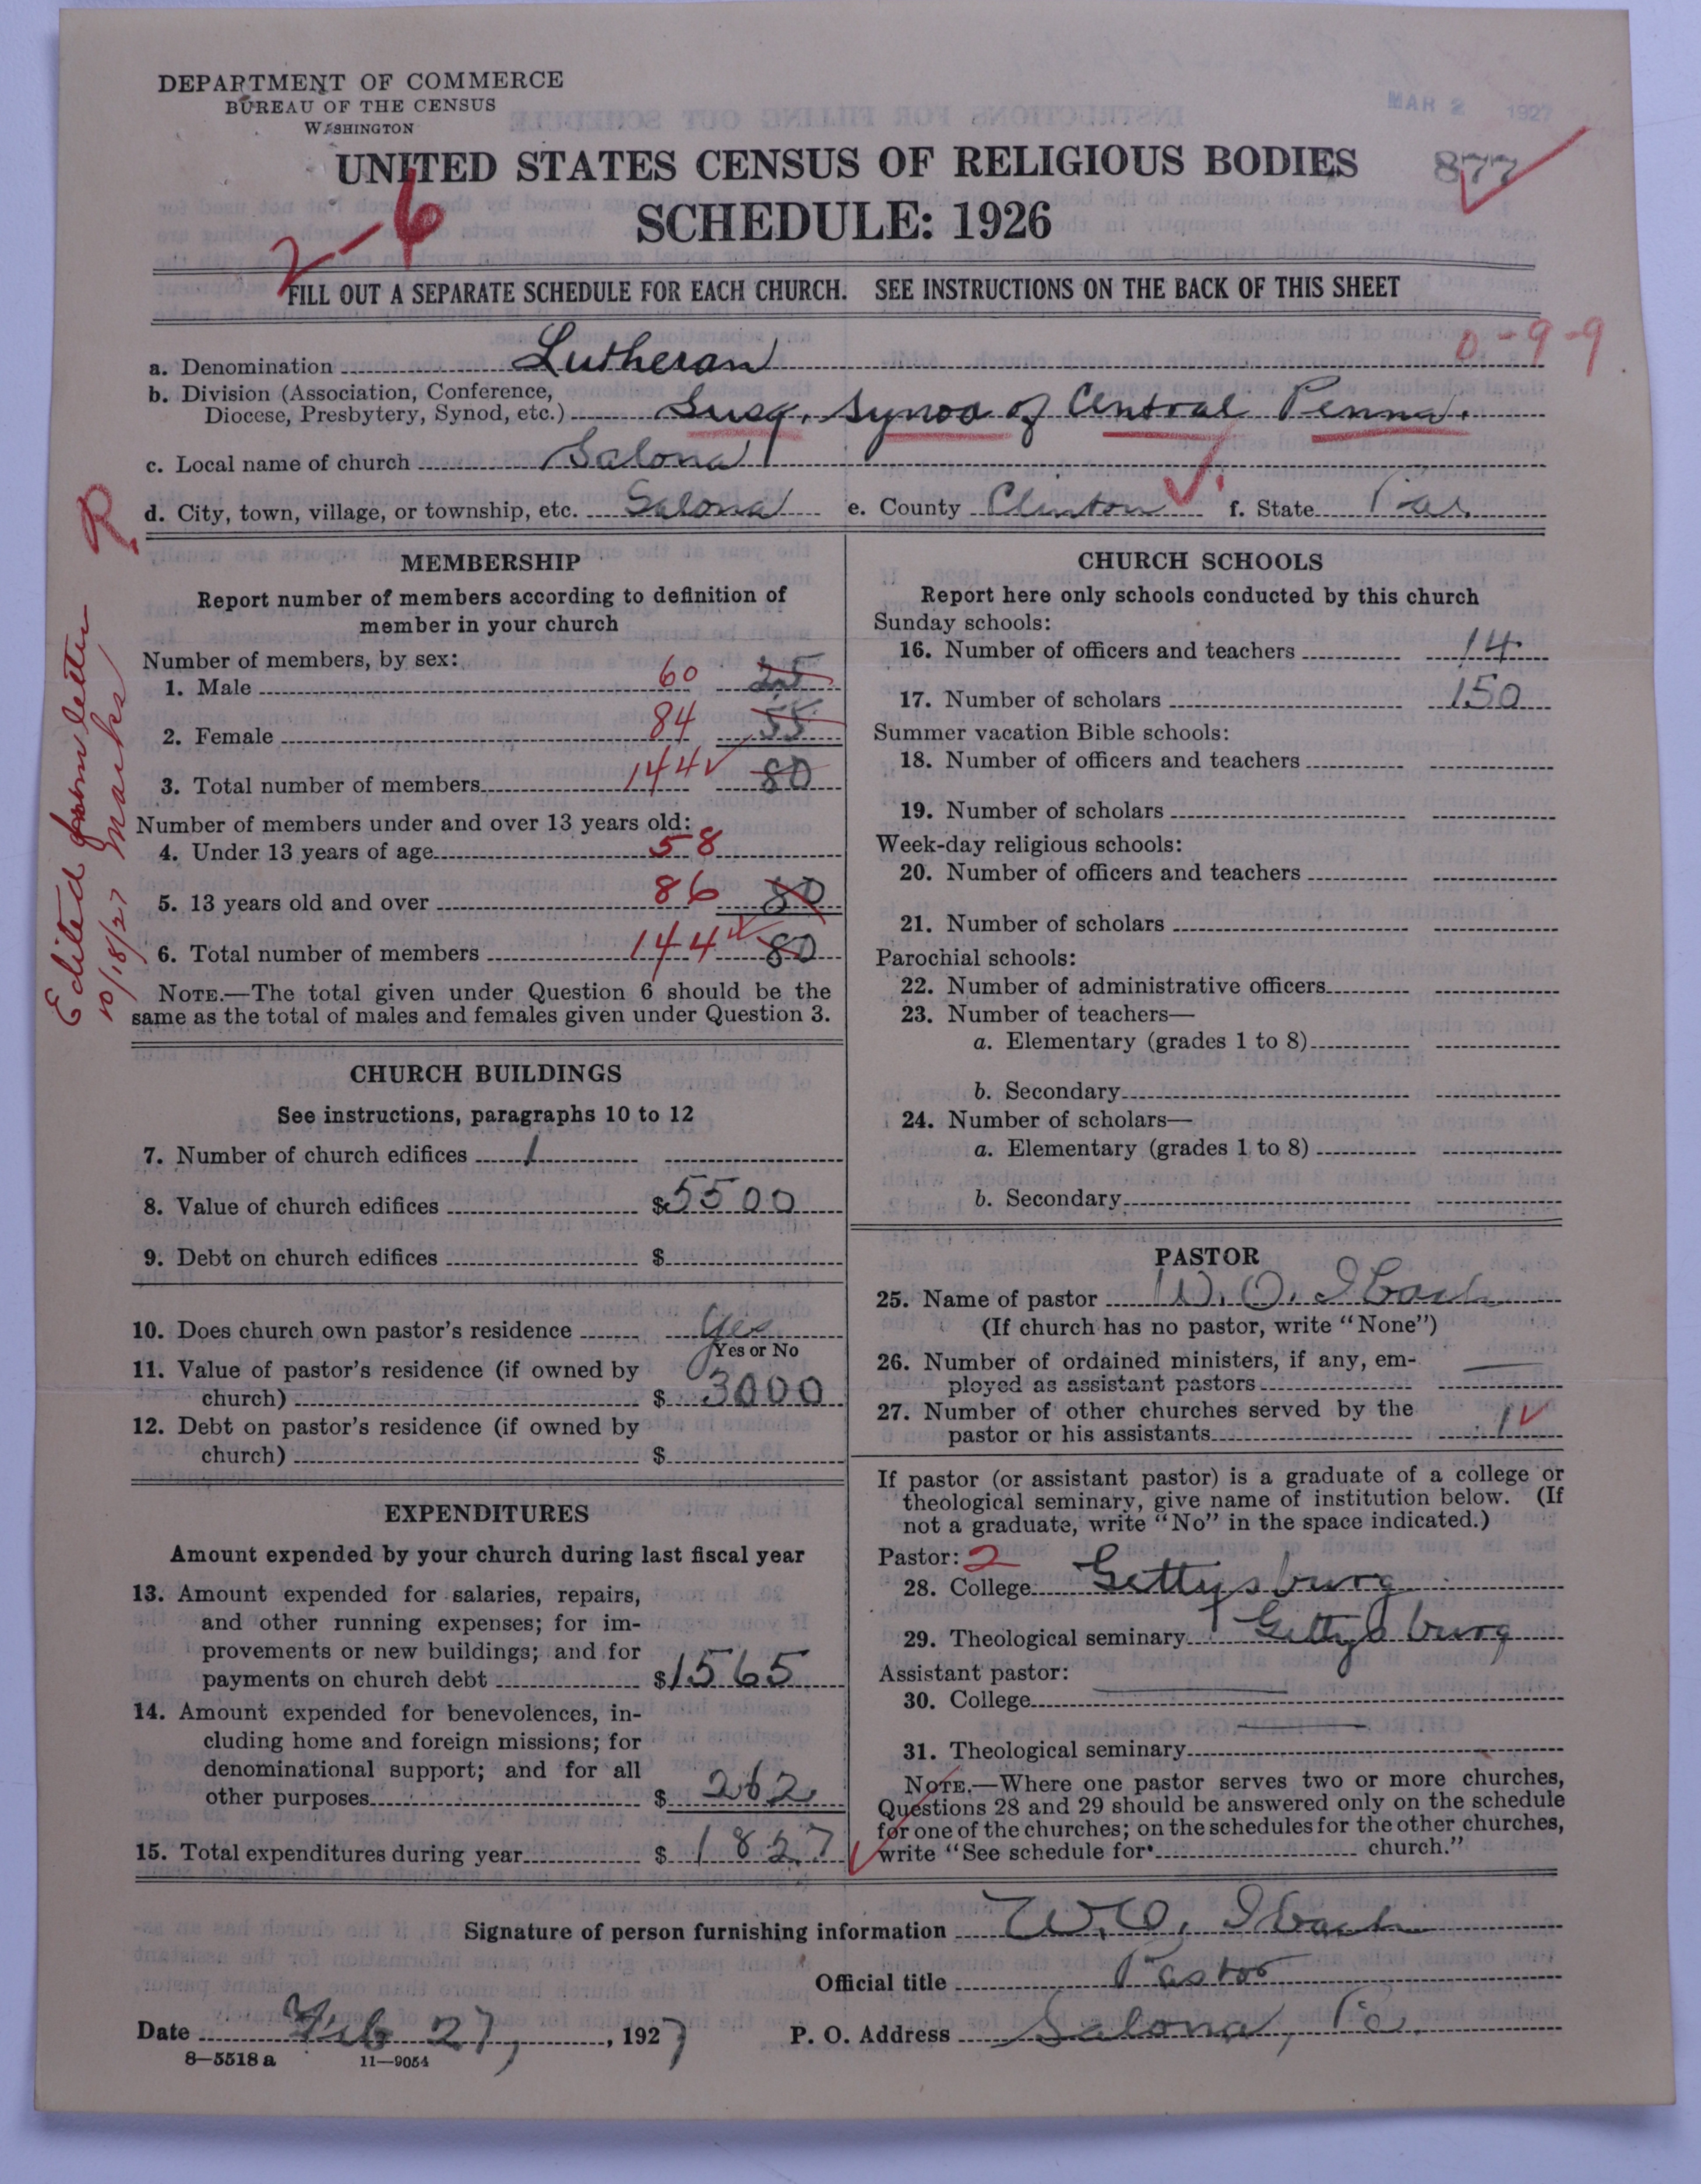 DEPARTMENT OF COMMERCE
BUREAU OF THE CENSUS
WASHINGTON
MAR 2 1927
UNITED STATES CENSUS OF RELIGIOUS BODIES
877
SCHEDULE: 1926
2-6
FILL OUT A SEPARATE SCHEDULE FOR EACH CHURCH. SEE INSTRUCTIONS ON THE BACK OF THIS SHEET
0-9-9
a. Denomination Lutheran
b. Division (Association, Conference,
Diocese, Presbytery, Synod, etc.) Susq. Synod of Central Penna.
c. Local name of church Salona
d. City, town, village, or township, etc. Salona e. County Clinton f. State Pa.
R.
Edited from letter
10/18/27 Marks
MEMBERSHIP
Report number of members according to definition of
member in your church
Number of members, by sex:
1. Male 60 25
2. Female 84 55
3. Total number of members 144 80
Number of members under and over 13 years old:
4. Under 13 years of age 58
5. 13 years old and over 86 80
6. Total number of members 144 80
NOTE.—The total given under Question 6 should be the
same as the total of males and females given under Question 3.
CHURCH BUILDINGS
See instructions, paragraphs 10 to 12
7. Number of church edifices 1
8. Value of church edifices $5500
9. Debt on church edifices $
10. Does church own pastor's residence Yes
Yes or No
11. Value of pastor's residence (if owned by
church) $ 3000
12. Debt on pastor's residence (if owned by
church) $
EXPENDITURES
Amount expended by your church during last fiscal year
13. Amount expended for salaries, repairs,
and other running expenses; for im-
provements or new buildings; and for
payments on church debt $1565
14. Amount expended for benevolences, in-
cluding home and foreign missions; for
denominational support; and for all
other purposes $ 262
15. Total expenditures during year $ 1827
CHURCH SCHOOLS
Report here only schools conducted by this church
Sunday schools:
16. Number of officers and teachers 14
17. Number of scholars 150
Summer vacation Bible schools:
18. Number of officers and teachers
19. Number of scholars
Week-day religious schools:
20. Number of officers and teachers
21. Number of scholars
Parochial schools:
22. Number of administrative officers
23. Number of teachers—
a. Elementary (grades 1 to 8)
b. Secondary
24. Number of scholars—
a. Elementary (grades 1 to 8)
b. Secondary
PASTOR
25. Name of pastor W. O. Ibach
(If church has no pastor, write "None")
26. Number of ordained ministers, if any, em-
ployed as assistant pastors
27. Number of other churches served by the
pastor or his assistants 1
If pastor (or assistant pastor) is a graduate of a college or
theological seminary, give name of institution below. (If
not a graduate, write "No" in the space indicated.)
Pastor: 2
28. College Gettysburg
29. Theological seminary Gettysburg
Assistant pastor:
30. College
31. Theological seminary
NOTE.—Where one pastor serves two or more churches,
Questions 28 and 29 should be answered only on the schedule
for one of the churches; on the schedules for the other churches,
write "See schedule for church."
Signature of person furnishing information W. O. Ibach
Official title Pastor
Date Feb 27, 1927 P. O. Address Salona, Pa.
8—5518 a 11—9054